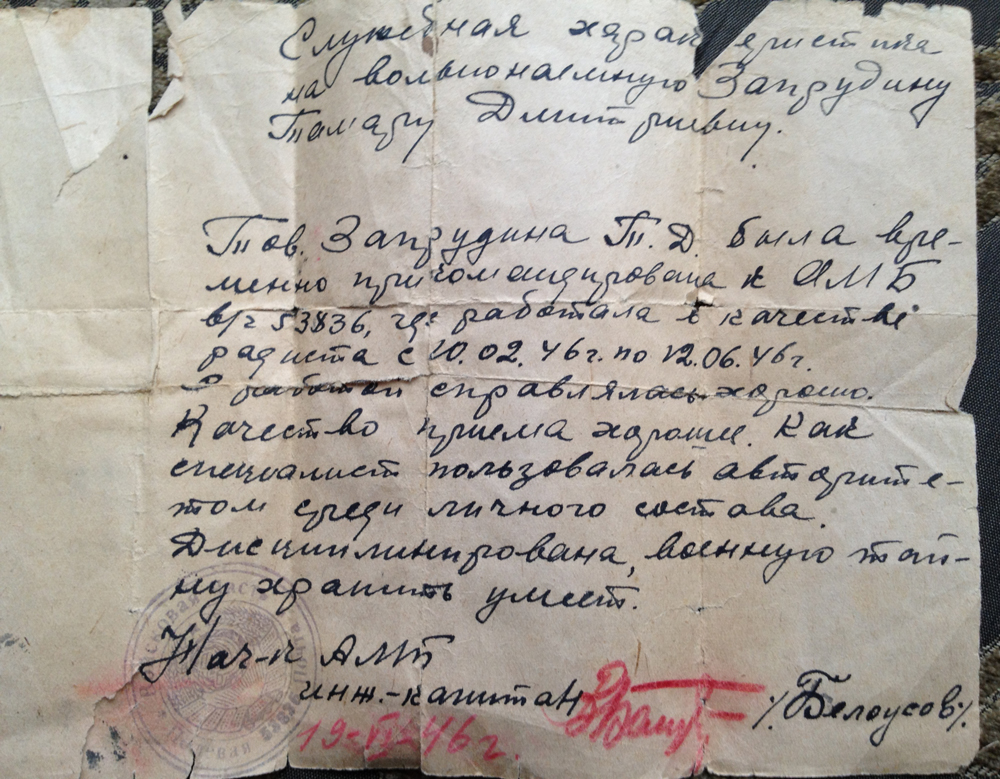 Служебная характеристика
на вольнонаемную Запрудину
Тамару Дмитриевну.
Тов. Запрудина Т. Д. была вре-
менно прикомандирована к АМБ
в/ч 53836, где работала в качестве
радиста с 20.02.46г. по 12.06.46г.
С работой справлялась хорошо.
Качество приема хорошее. Как
специалист пользовалась авторите-
том среди личного состава.
Дисциплинирована, военную тай-
ну хранить умеет.
Нач-к АМБ
инж.-капитан /Белоусов/.
19-VI-46г.